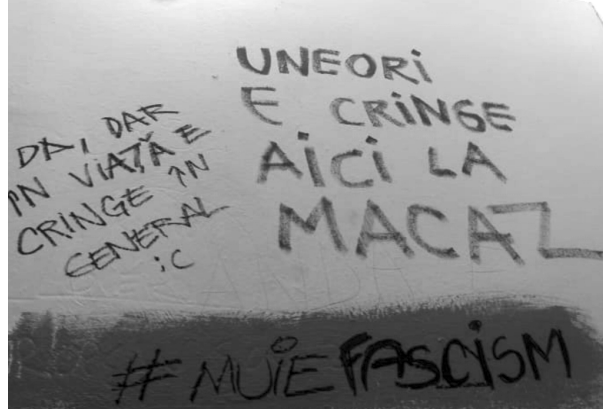 UNEORi
E CRiNGE
AiCi LA
MACAZ
DA, DAR
ÎN VIAȚĂ E
CRINGE ÎN
GENERAL
:C
# MUiE FASCiSM